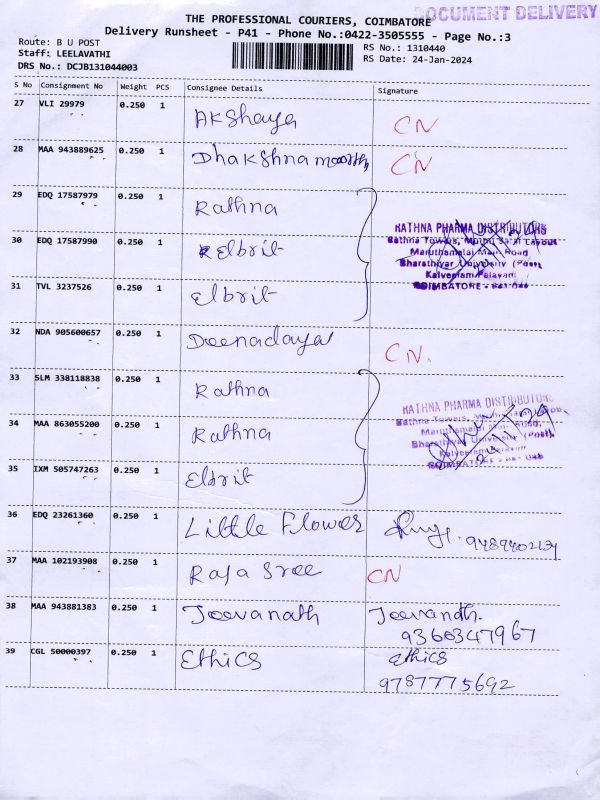 DOCUMENT DELIVERY
THE PROFESSIONAL COURIERS, COIMBATORE
Delivery Runsheet - P41 - Phone No.:0422-3505555 - Page No.:3
Route: B U POST
Staff: LEELAVATHI
DRS No.: DCJB131044003
RS No.: 1310440
RS Date: 24-Jan-2024
S No Consignment No Weight PCS Consignee Details Signature
27 VLI 29979 0.250 1 Akshaya CN
28 MAA 943889625 0.250 1 Dhakshnamoorthy CN
29 EDQ 17587979 0.250 1 Rathna
30 EDQ 17587990 0.250 1 Elbrit
31 TVL 3237526 0.250 1 Elbrit
RATHNA PHARMA DISTRIBUTORS
Rathna Towers, Muthu Layout
Maruthamalai Main Road
Bharathiyar University (Post),
Kalveerampalayam
COIMBATORE - 641 046
32 NDA 905600657 0.250 1 Deenadayal CN.
33 SLM 338118838 0.250 1 Rathna
34 MAA 863055200 0.250 1 Rathna
35 IXM 505747263 0.250 1 Elbrit
RATHNA PHARMA DISTRIBUTORS
Rathna Towers,
Maruthamalai Main Road,
Bharathiyar University (Post),
Kalveerampalayam
COIMBATORE - 641 046
36 EDQ 23261360 0.250 1 Little Flower
37 MAA 102193908 0.250 1 Raja Sree CN
38 MAA 943881383 0.250 1 Jeevanath Jeevandh.
9360347967
39 CGL 50000397 0.250 1 Ethics Ethics
9787775692